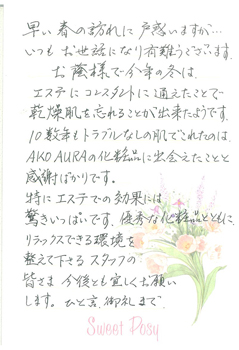 早い春の訪れに戸惑いますが…
いつもお世話になり有難うございます。
お蔭様で今年の冬は、
エステにコンスタントに通えたことで
乾燥肌を忘れることが出来たようです。
10数年もトラブルなしの肌でこれたのは、
AKO AURAの化粧品に出会えたことと
感謝ばかりです。
特にエステでの効果には
驚きいっぱいです。優秀な化粧品とともに、
リラックスできる環境を
整えて下さるスタッフの
皆さま 今後とも宜しくお願い
します。ひと言、御礼まで。
Sweet Posy